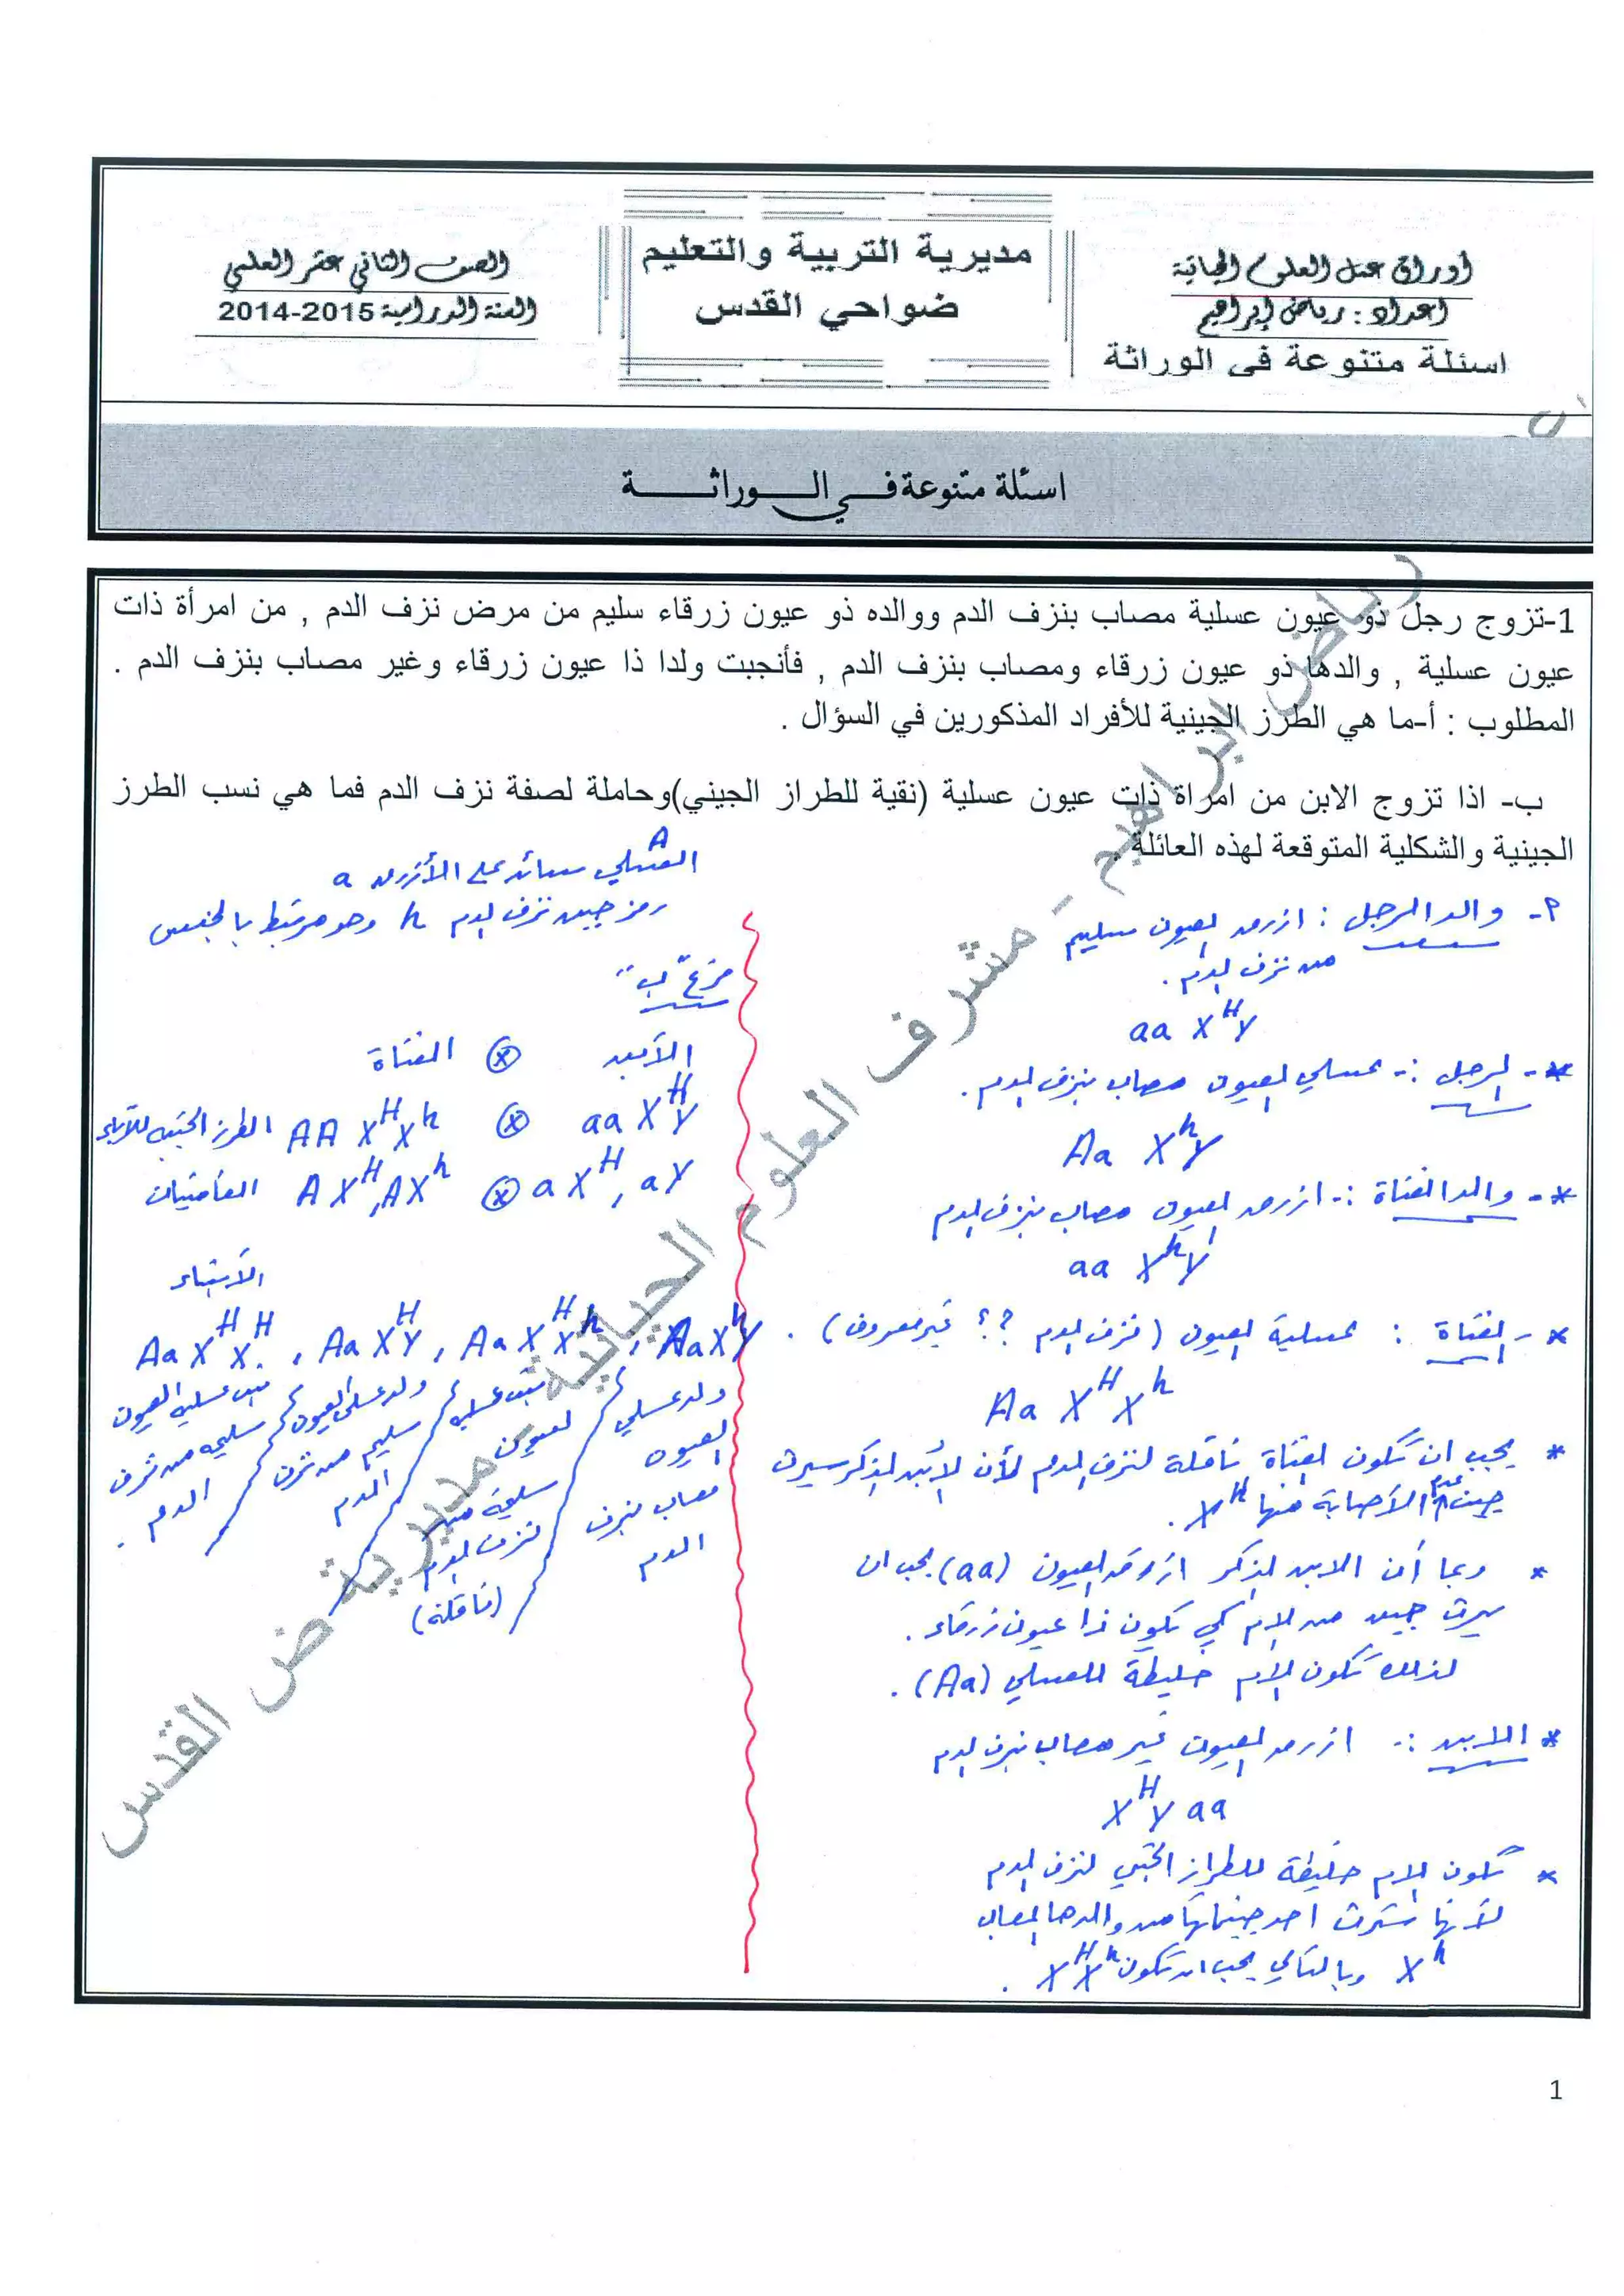 أوراق عمل العلوم الحياتية
إعداد : رياض إبراهيم
اسئلة متنوعة في الوراثة
مديرية التربية والتعليم
ضواحي القدس
الصف الثاني عشر العلمي
السنة الدراسية 2014-2015
اسئلة متنوعة فــي الــــوراثــــــة
1-تزوج رجل ذو عيون عسلية مصاب بنزف الدم ووالده ذو عيون زرقاء سليم من مرض نزف الدم , من امرأة ذات
عيون عسلية , والدها ذو عيون زرقاء ومصاب بنزف الدم , فأنجبت ولدا ذا عيون زرقاء وغير مصاب بنزف الدم .
المطلوب : أ-ما هي الطرز الجينية للأفراد المذكورين في السؤال .
ب- اذا تزوج الابن من امراة ذات عيون عسلية (نقية للطراز الجيني)وحاملة لصفة نزف الدم فما هي نسب الطرز
الجينية والشكلية المتوقعة لهذه العائلة .
أ- والد الرجل : ازرق العيون سليم
من نزف الدم .
aa X^H Y
*- الرجل :- عسلي العيون مصاب بنزف الدم .
Aa X^h Y
*- والد الفتاة :- ازرق العيون مصاب بنزف الدم
aa X^h Y
*- الفتاة : عسلية العيون (نزف الدم ?? غير معروف) .
Aa X^H X^h
* يجب ان تكون الفتاة ناقلة لنزف الدم لأن الابن الذكر سيرث
جين عدم الاصابة منها X^H .
* وبما أن الابن الذكر ازرق العيون (aa) يجب ان
يرث جين من الام لكي يكون ذا عيون زرقاء .
لذلك تكون الام خليطة للعسلي (Aa) .
* الابن :- ازرق العيون غير مصاب بنزف الدم
X^H Y aa
* تكون الام خليطة للطراز الجيني لنزف الدم
لأنها سترث احد جيناتها من والدها المصاب
X^h وبالتالي يجب ان تكون X^H X^h .
العسلي A سائد على الأزرق a
رمز جين نزف الدم h وهو مرتبط بالجنس
فرع "ب"
الابن ⊗ الفتاة
aa X^H Y ⊗ AA X^H X^h الطرز الجينية للآباء
a X^H , aY ⊗ A X^H , A X^h الجاميتات
الأبناء
Aa X^H X^H , Aa X^H Y , Aa X^H X^h , Aa X^h Y
ولد عسلي
العيون
مصاب بنزف
الدم
بنت عسلية
العيون
سليمة من
نزف الدم
(ناقلة)
ولد عسلي العيون
سليم من نزف
الدم
بنت عسلية العيون
سليمة من نزف
الدم .
رياض ابراهيم - مشرف العلوم الحياتية - مديرية ض القدس
1